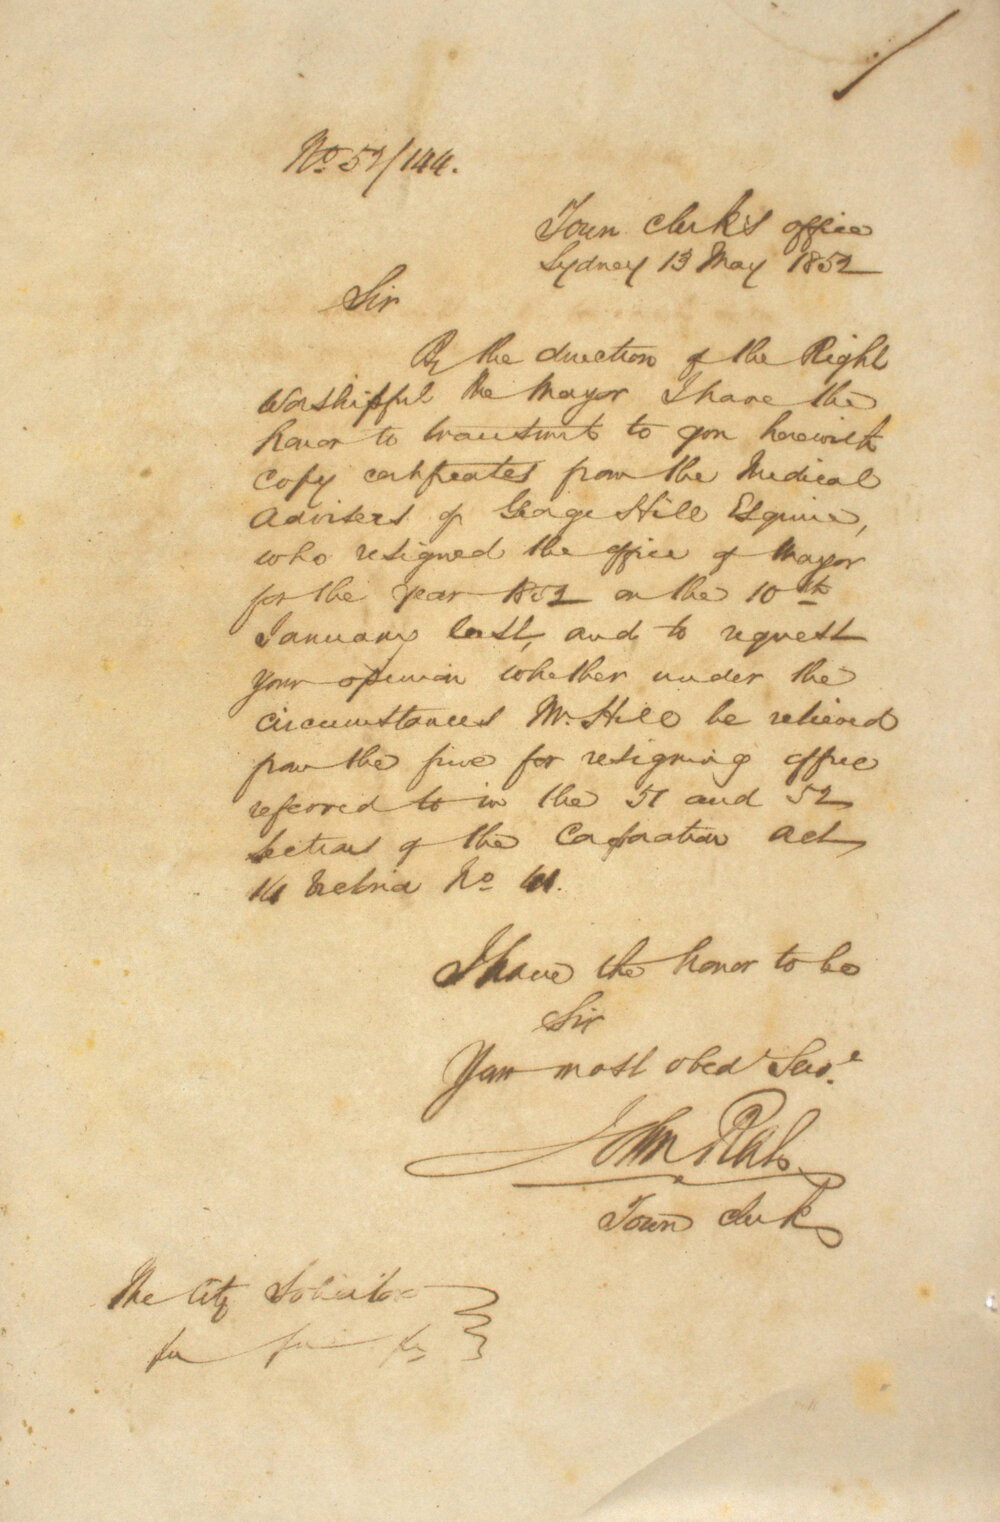 No. 52/144.
Town Clerk's office
Sydney 13 May 1852
Sir
By the direction of the Right
Worshipful the Mayor I have the
honor to transmit to you herewith
copy certificates from the Medical
Advisers of George Hill Esquire,
who resigned the office of Mayor
for the Year 1852 on the 10th
January last, and to request
your opinion whether under the
circumstances Mr. Hill be relieved
from the fine for resigning office
referred to in the 51 and 52
Sections of the Corporation Act
14 Victoria No 41.
I have the honor to be
Sir
Your most obedt Servt
John Rae
Town Clerk
The City Solicitor